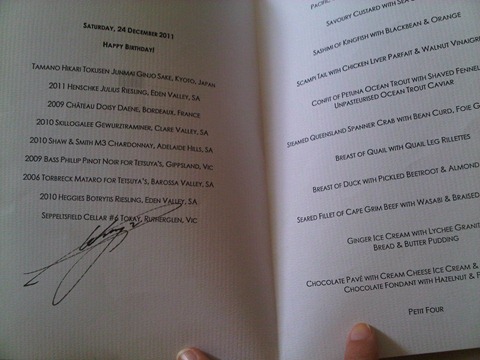 Saturday, 24 December 2011
Happy Birthday!
Tamano Hikari Tokusen Junmai Ginjo Sake, Kyoto, Japan
2011 Henschke Julius Riesling, Eden Valley, SA
2009 Château Doisy Daene, Bordeaux, France
2010 Skillogalee Gewurztraminer, Clare Valley, SA
2010 Shaw & Smith M3 Chardonnay, Adelaide Hills, SA
2009 Bass Phillip Pinot Noir for Tetsuya's, Gippsland, Vic
2006 Torbreck Mataro for Tetsuya's, Barossa Valley, SA
2010 Heggies Botrytis Riesling, Eden Valley, SA
Seppeltsfield Cellar #6 Tokay, Rutherglen, Vic
Pacific
Savoury Custard with Sea
Sashimi of Kingfish with Blackbean & Orange
Scampi Tail with Chicken Liver Parfait & Walnut Vinaigre
Confit of Petuna Ocean Trout with Shaved Fennel
Unpasteurised Ocean Trout Caviar
Steamed Queensland Spanner Crab with Bean Curd, Foie G
Breast of Quail with Quail Leg Rillettes
Breast of Duck with Pickled Beetroot & Almond
Seared Fillet of Cape Grim Beef with Wasabi & Braised
Ginger Ice Cream with Lychee Granit
Bread & Butter Pudding
Chocolate Pavé with Cream Cheese Ice Cream &
Chocolate Fondant with Hazelnut &
Petit Four